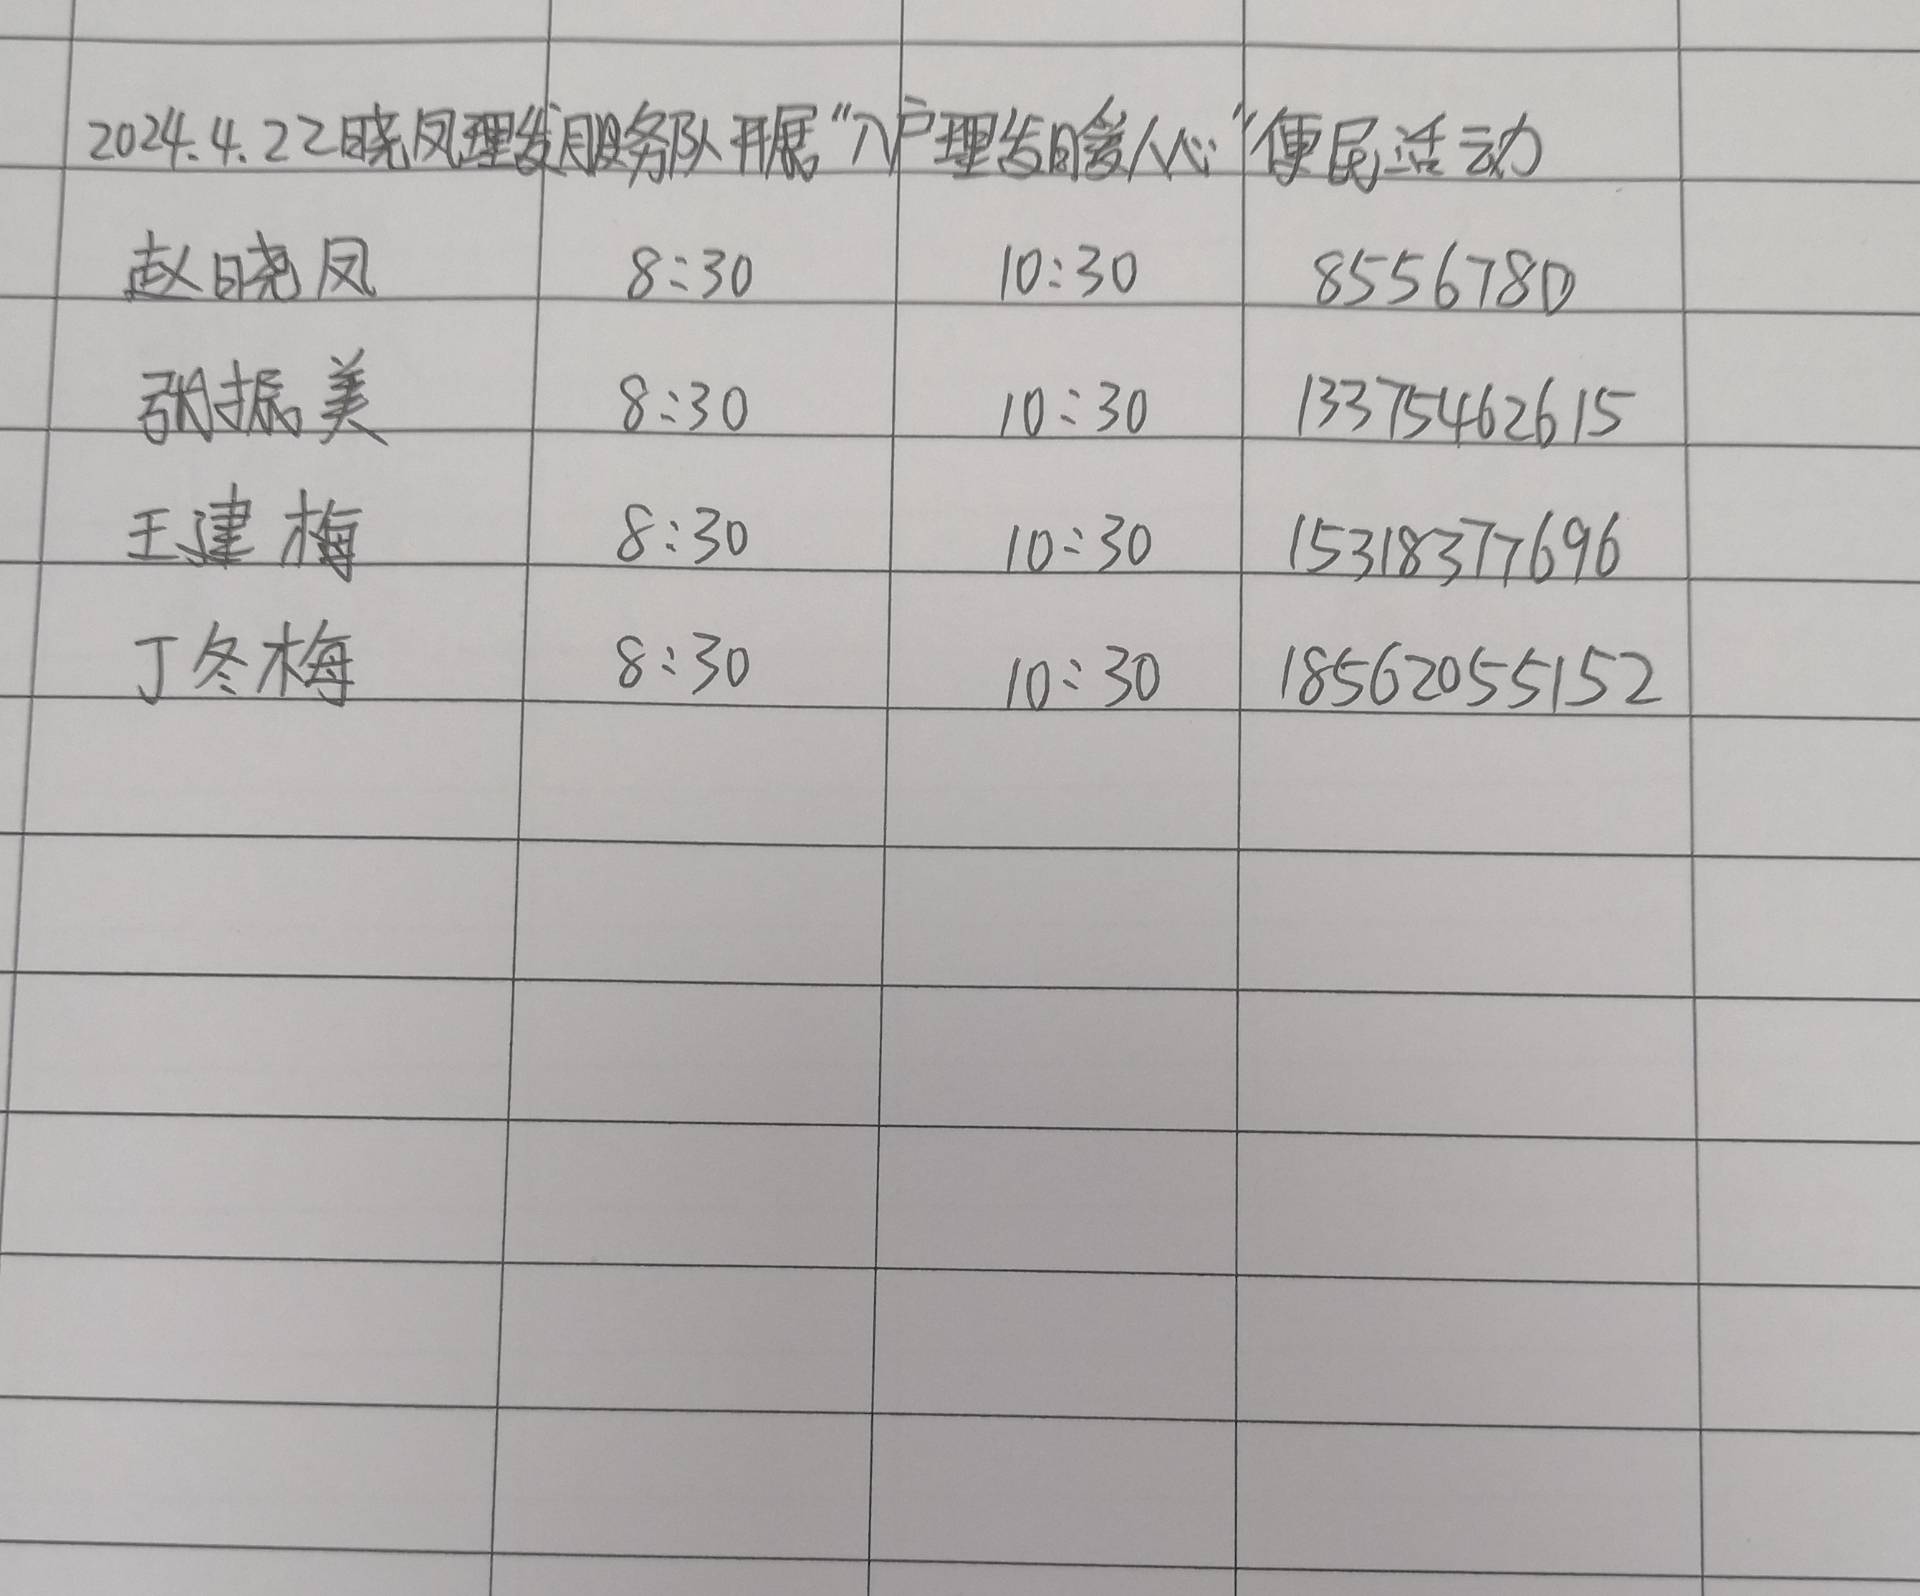 2024.4.22晓凤理发服务队开展“入户理发暖人心”便民活动
赵晓凤 8:30 10:30 8556780
张振美 8:30 10:30 13375462615
王建梅 8:30 10:30 15318377696
丁冬梅 8:30 10:30 18562055152